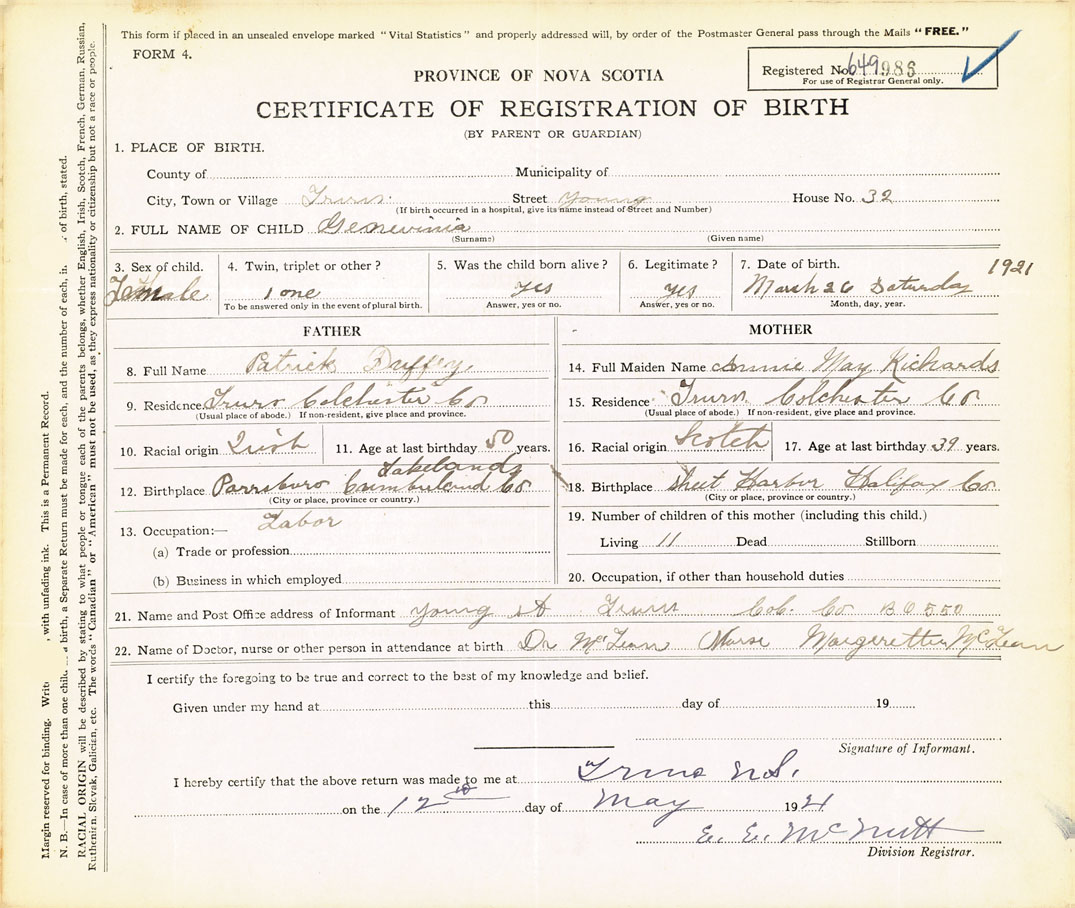 This form if placed in an unsealed envelope marked "Vital Statistics" and properly addressed will, by order of the Postmaster General pass through the Mails "FREE."
FORM 4.
Registered No. 649985
For use of Registrar General only.
PROVINCE OF NOVA SCOTIA
CERTIFICATE OF REGISTRATION OF BIRTH
(BY PARENT OR GUARDIAN)
1. PLACE OF BIRTH.
County of Municipality of
City, Town or Village Truro. Street Young House No. 32
(If birth occurred in a hospital, give its name instead of Street and Number)
2. FULL NAME OF CHILD Genevinia
(Surname) (Given name)
3. Sex of child. Female
4. Twin, triplet or other? 1 one
To be answered only in the event of plural birth.
5. Was the child born alive? yes
Answer, yes or no.
6. Legitimate? yes
Answer, yes or no.
7. Date of birth. 1921
March 26 Saturday
Month, day, year.
FATHER
8. Full Name Patrick Duffey
9. Residence Truro Colchester Co
(Usual place of abode.) If non-resident, give place and province.
10. Racial origin Irish
11. Age at last birthday 50 years.
Lakelands
12. Birthplace Parrsboro Cumberland Co
(City or place, province or country.)
13. Occupation:— Labor
(a) Trade or profession
(b) Business in which employed
MOTHER
14. Full Maiden Name Annie May Richards
15. Residence Truro Colchester Co
(Usual place of abode.) If non-resident, give place and province.
16. Racial origin Scotch
17. Age at last birthday 39 years.
18. Birthplace Sheet Harbor Halifax Co
(City or place, province or country.)
19. Number of children of this mother (including this child.)
Living 11 Dead Stillborn
20. Occupation, if other than household duties
21. Name and Post Office address of Informant Young St Truro Col. Co Bo 550
22. Name of Doctor, nurse or other person in attendance at birth Dr McLean Nurse Margeretter McLean
I certify the foregoing to be true and correct to the best of my knowledge and belief.
Given under my hand at this day of 19
Signature of Informant.
I hereby certify that the above return was made to me at Truro N.S.
on the 12th day of May 1921
E. E. McNutt
Division Registrar.
Margin reserved for binding. with unfading ink. This is a Permanent Record.
N. B.—In case of more than one a birth, a Separate Return must be made for each, and the number of each, in of birth, stated.
RACIAL ORIGIN will be described by stating to what people or tongue each of the parents belongs, whether English, Irish, Scotch, French, German, Russian,
Ruthenian, Slovak, Galician, etc. The words "Canadian" or "American" must not be used, as they express nationality or citizenship but not a race or people.